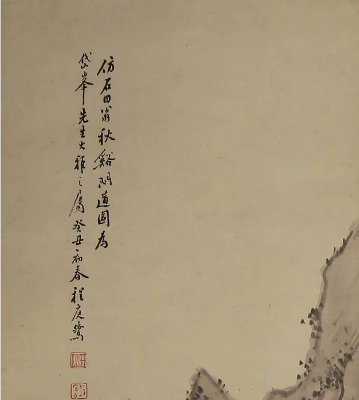 仿石田翁秋谿問道圖為
岱峯先生大雅之屬癸丑初春程庭鷺